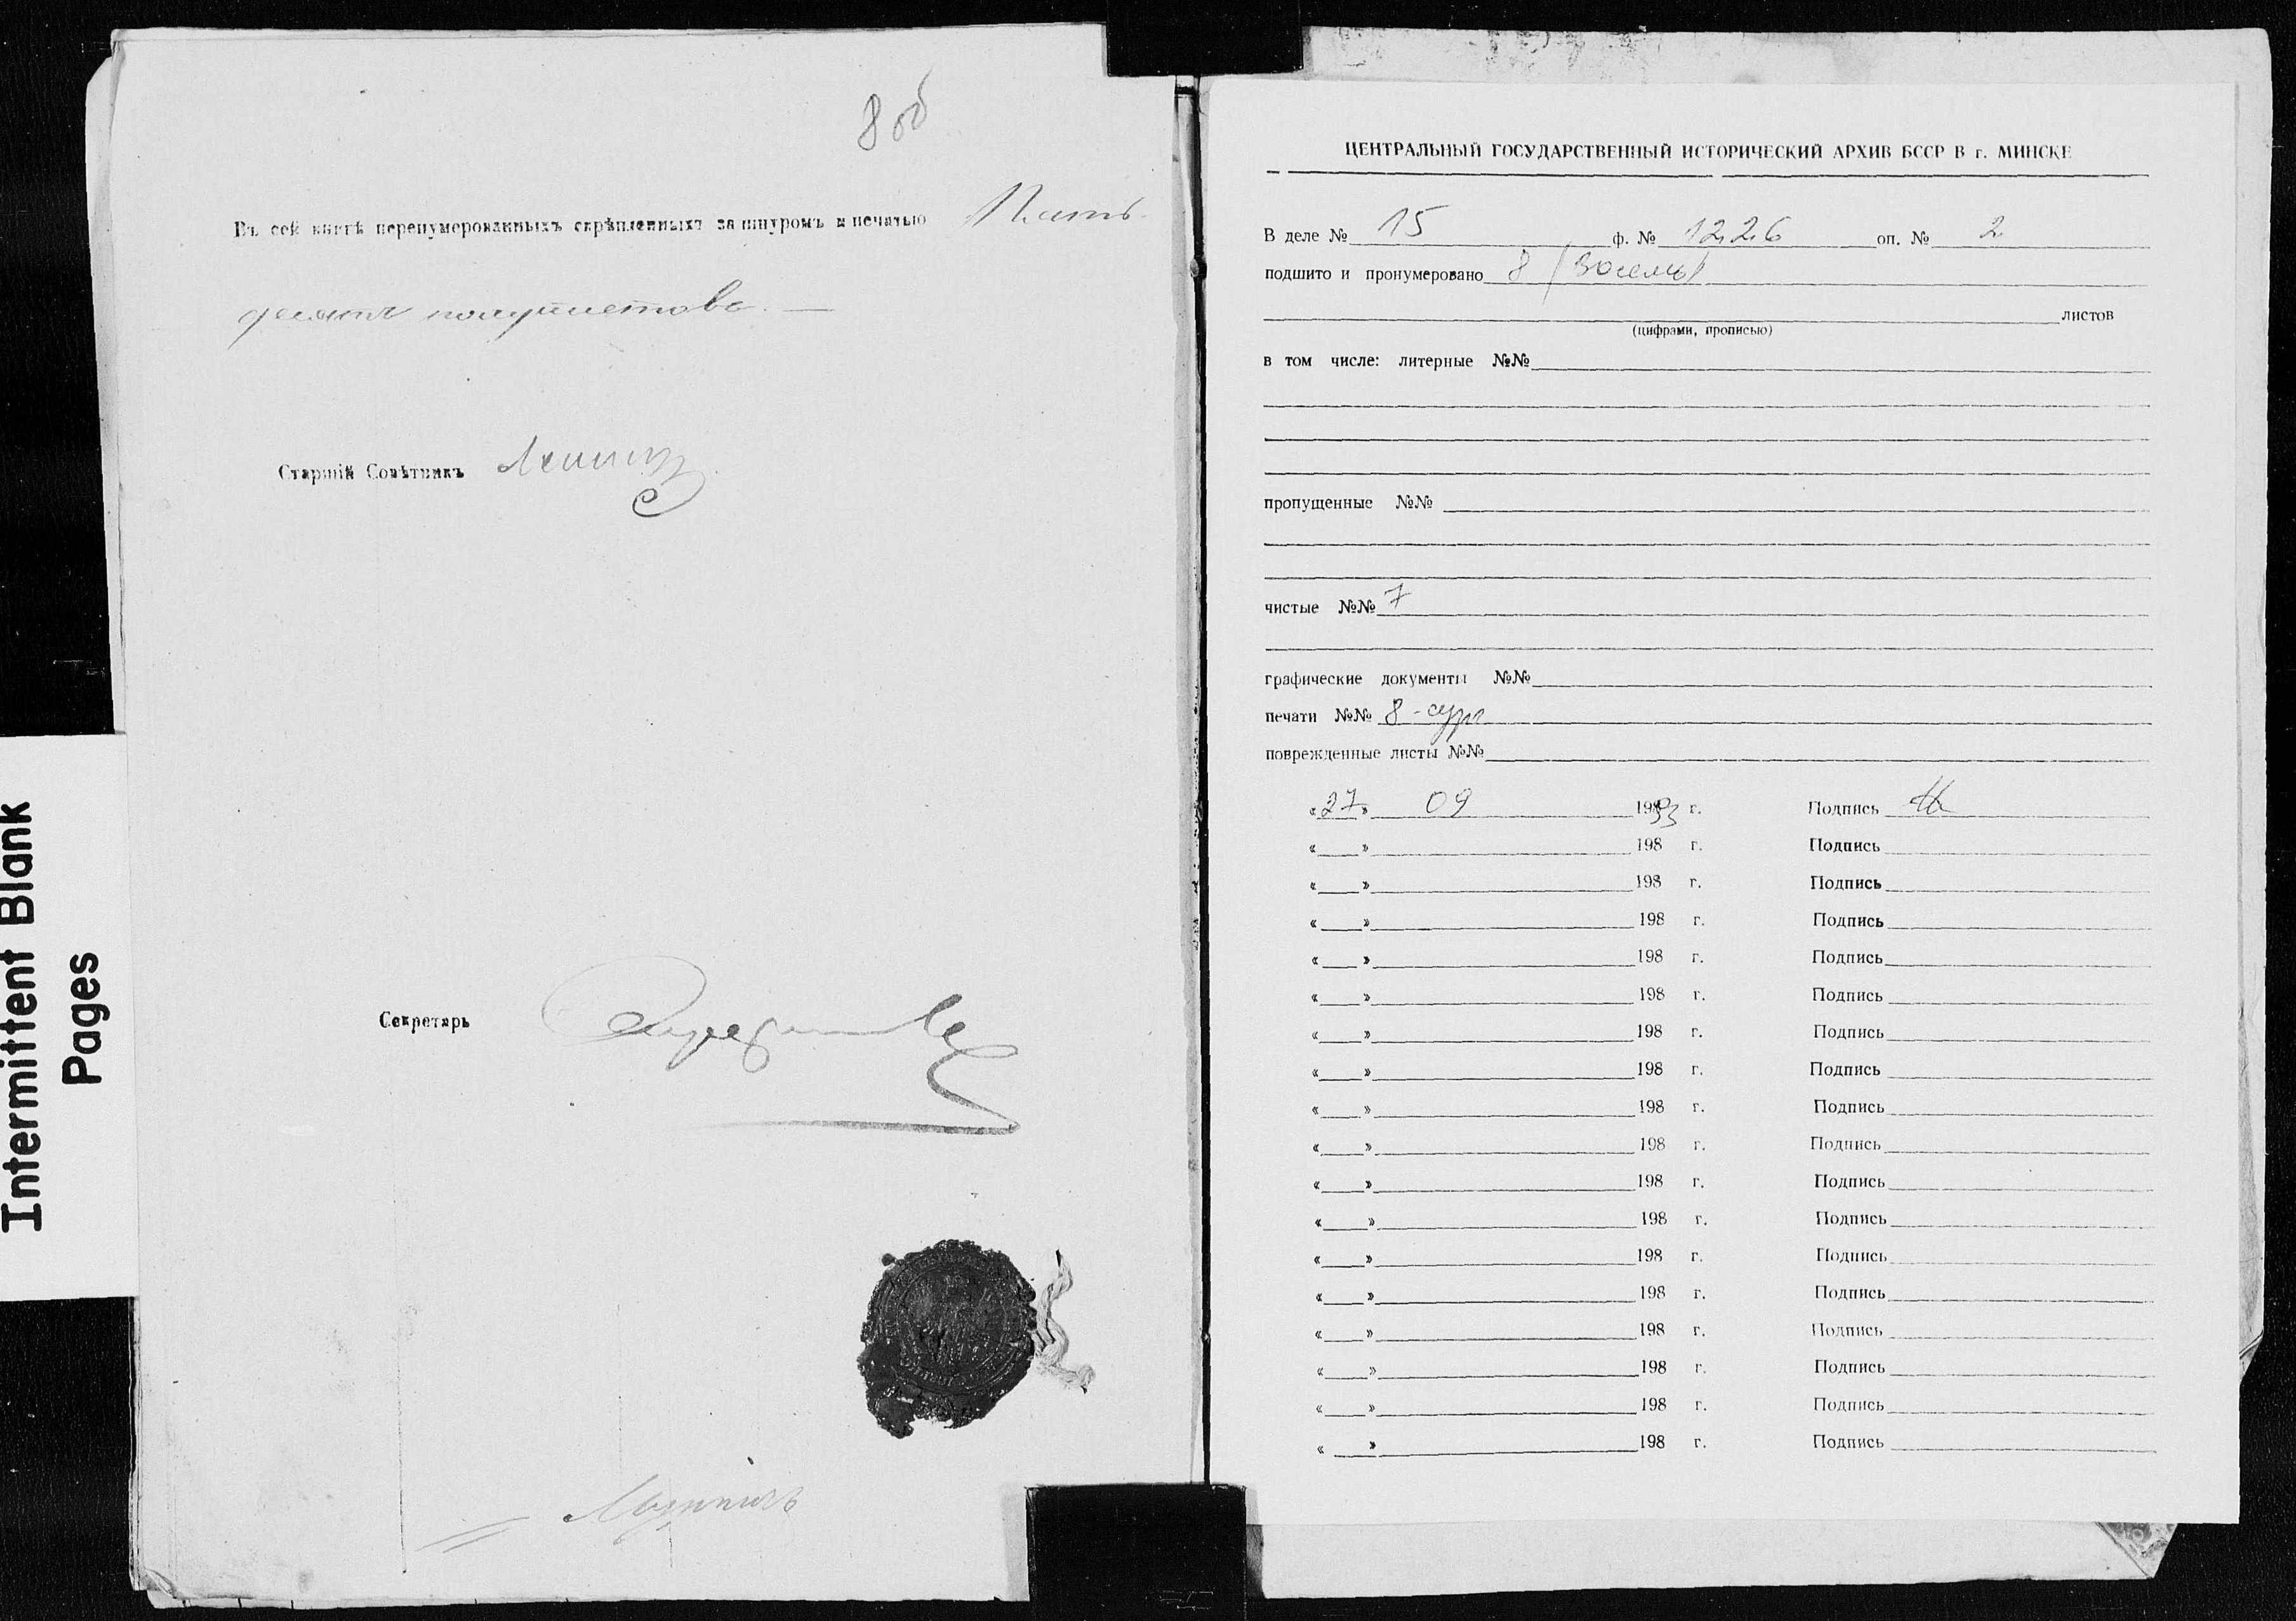 Intermittent Blank
Pages
8 об
Въ сей книгѣ перенумерованныхъ скрѣпленныхъ за шнуромъ и печатью Пять
десятъ полулистовъ. —
Старшій Совѣтникъ
Секретарь
ЦЕНТРАЛЬНЫЙ ГОСУДАРСТВЕННЫЙ ИСТОРИЧЕСКИЙ АРХИВ БССР В г. МИНСКЕ
В деле № 15 ф. № 1226 оп. № 2
подшито и пронумеровано 8 (восемь)
листов
(цифрами, прописью)
в том числе: литерные №№
пропущенные №№
чистые №№ 7
графические документы №№
печати №№ 8 - сург
поврежденные листы №№
«27» 09 1993 г. Подпись
« » 198 г. Подпись
« » 198 г. Подпись
« » 198 г. Подпись
« » 198 г. Подпись
« » 198 г. Подпись
« » 198 г. Подпись
« » 198 г. Подпись
« » 198 г. Подпись
« » 198 г. Подпись
« » 198 г. Подпись
« » 198 г. Подпись
« » 198 г. Подпись
« » 198 г. Подпись
« » 198 г. Подпись
« » 198 г. Подпись
« » 198 г. Подпись
« » 198 г. Подпись